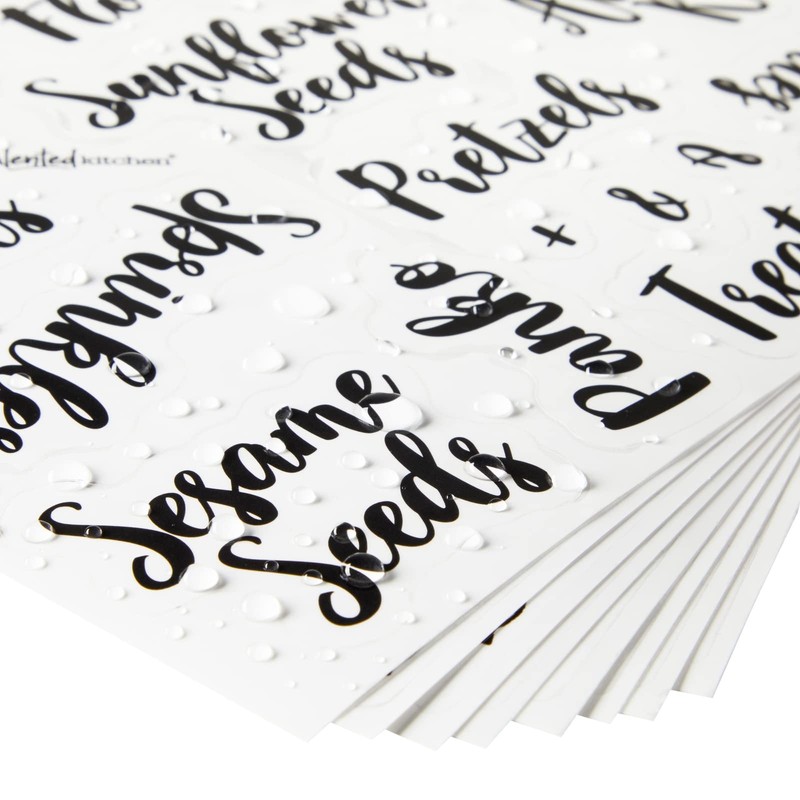 Sunflower
Seeds
Pretzels
talented kitchen®
+ & A
Sprinkles
Panko
Sesame
Seeds